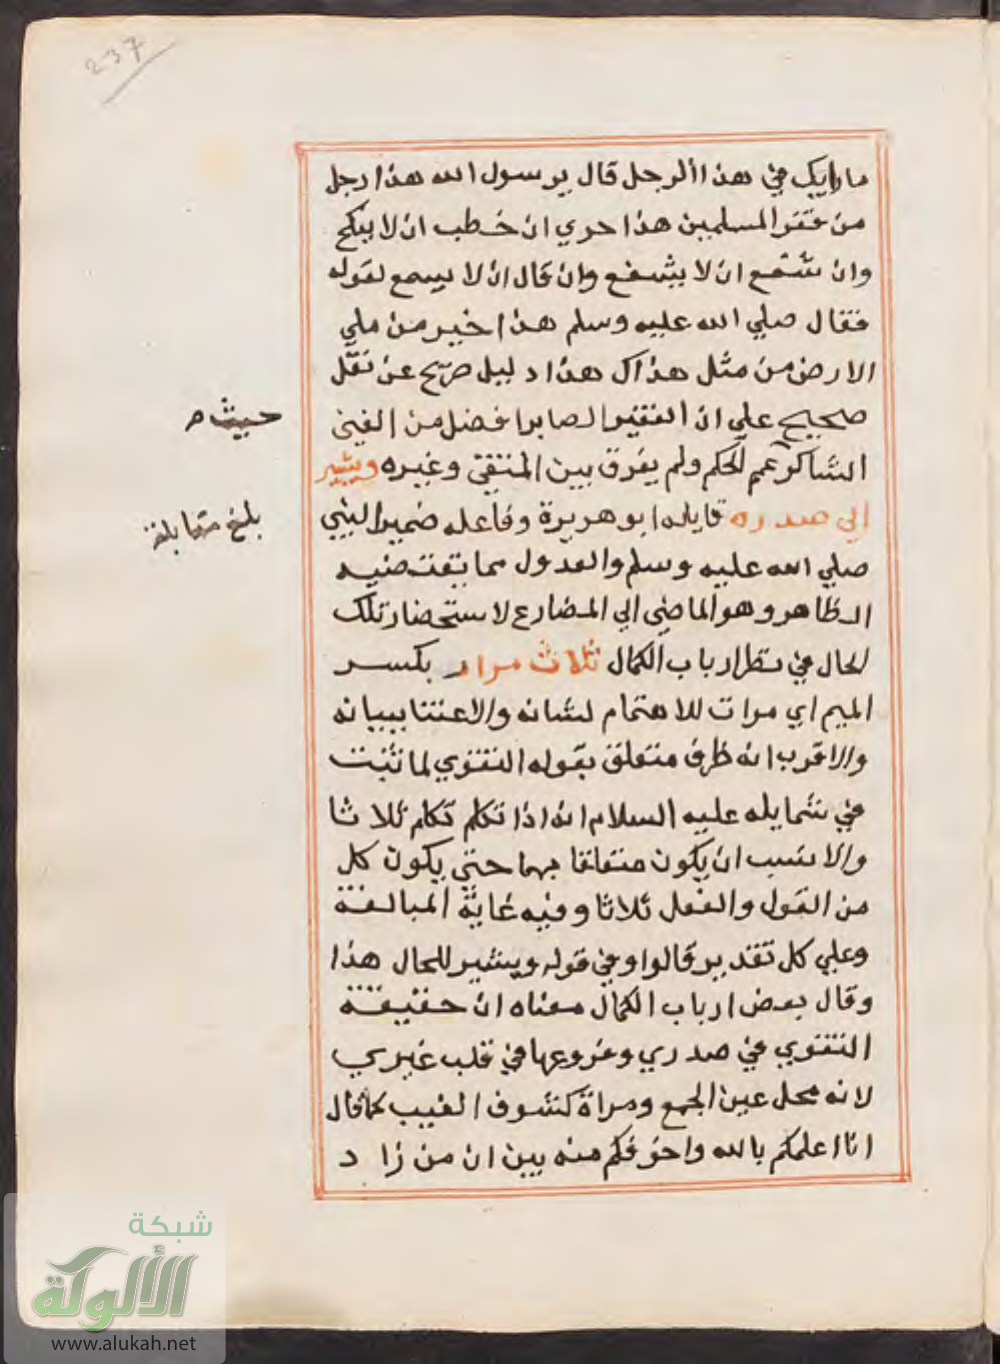 237
ما رايك في هذا الرجل قال يرسول الله هذا رجل
من فقرا المسلمين هذا حري ان خطب ان لا ينكح
وان شفع ان لا يشفع وان قال ان لا يسمع لقوله
فقال صلي الله عليه وسلم هذا خير من ملي
الارض من مثل هذاك هذا دليل صريح عن نقل
صحيح علي ان الفقير الصابر افضل من الغني
حيث م
الشاكر عم الحكم ولم يفرق بين المتقي وغيره ويشير
الي صدره قايله ابو هريرة وفاعله ضمير النبي
بلغ مقابلة
صلي الله عليه وسلم والعدول مما يقتضيه
الظاهر وهو الماضي الي المضارع لاستحضار تلك
الحال في نظر ارباب الكمال ثلاث مرار بكسر
الميم اي مرات للاهتمام لشانه والاعتنا ببيانه
والاقرب انه ظرف متعلق بقوله التقوي لما ثبت
في شمايله عليه السلام انه اذا تكلم تكلم ثلاثا
والانسب ان يكون متعلقا بهما حتي يكون كل
من القول والفعل ثلاثا وفيه غاية المبالغة
وعلي كل تقدير قالوا وفي قوله ويشير للحال هذا
وقال بعض ارباب الكمال معناه ان حقيقة
التقوي في صدري وفروعها في قلب غيري
لانه محل عين الجمع ومراة كشوف الغيب كما قال
انا اعلمكم بالله واخوفكم منه بين ان من زاد
شبكة
الألوكة
www.alukah.net